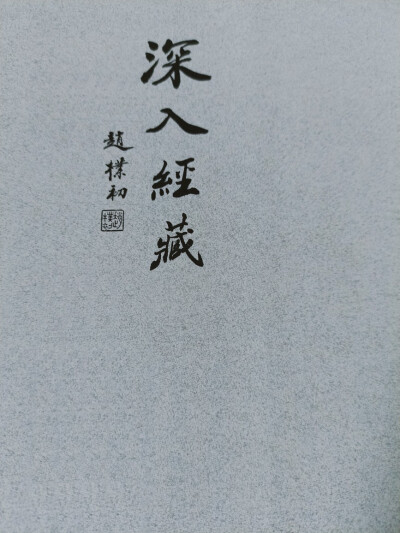 深入經藏
趙樸初